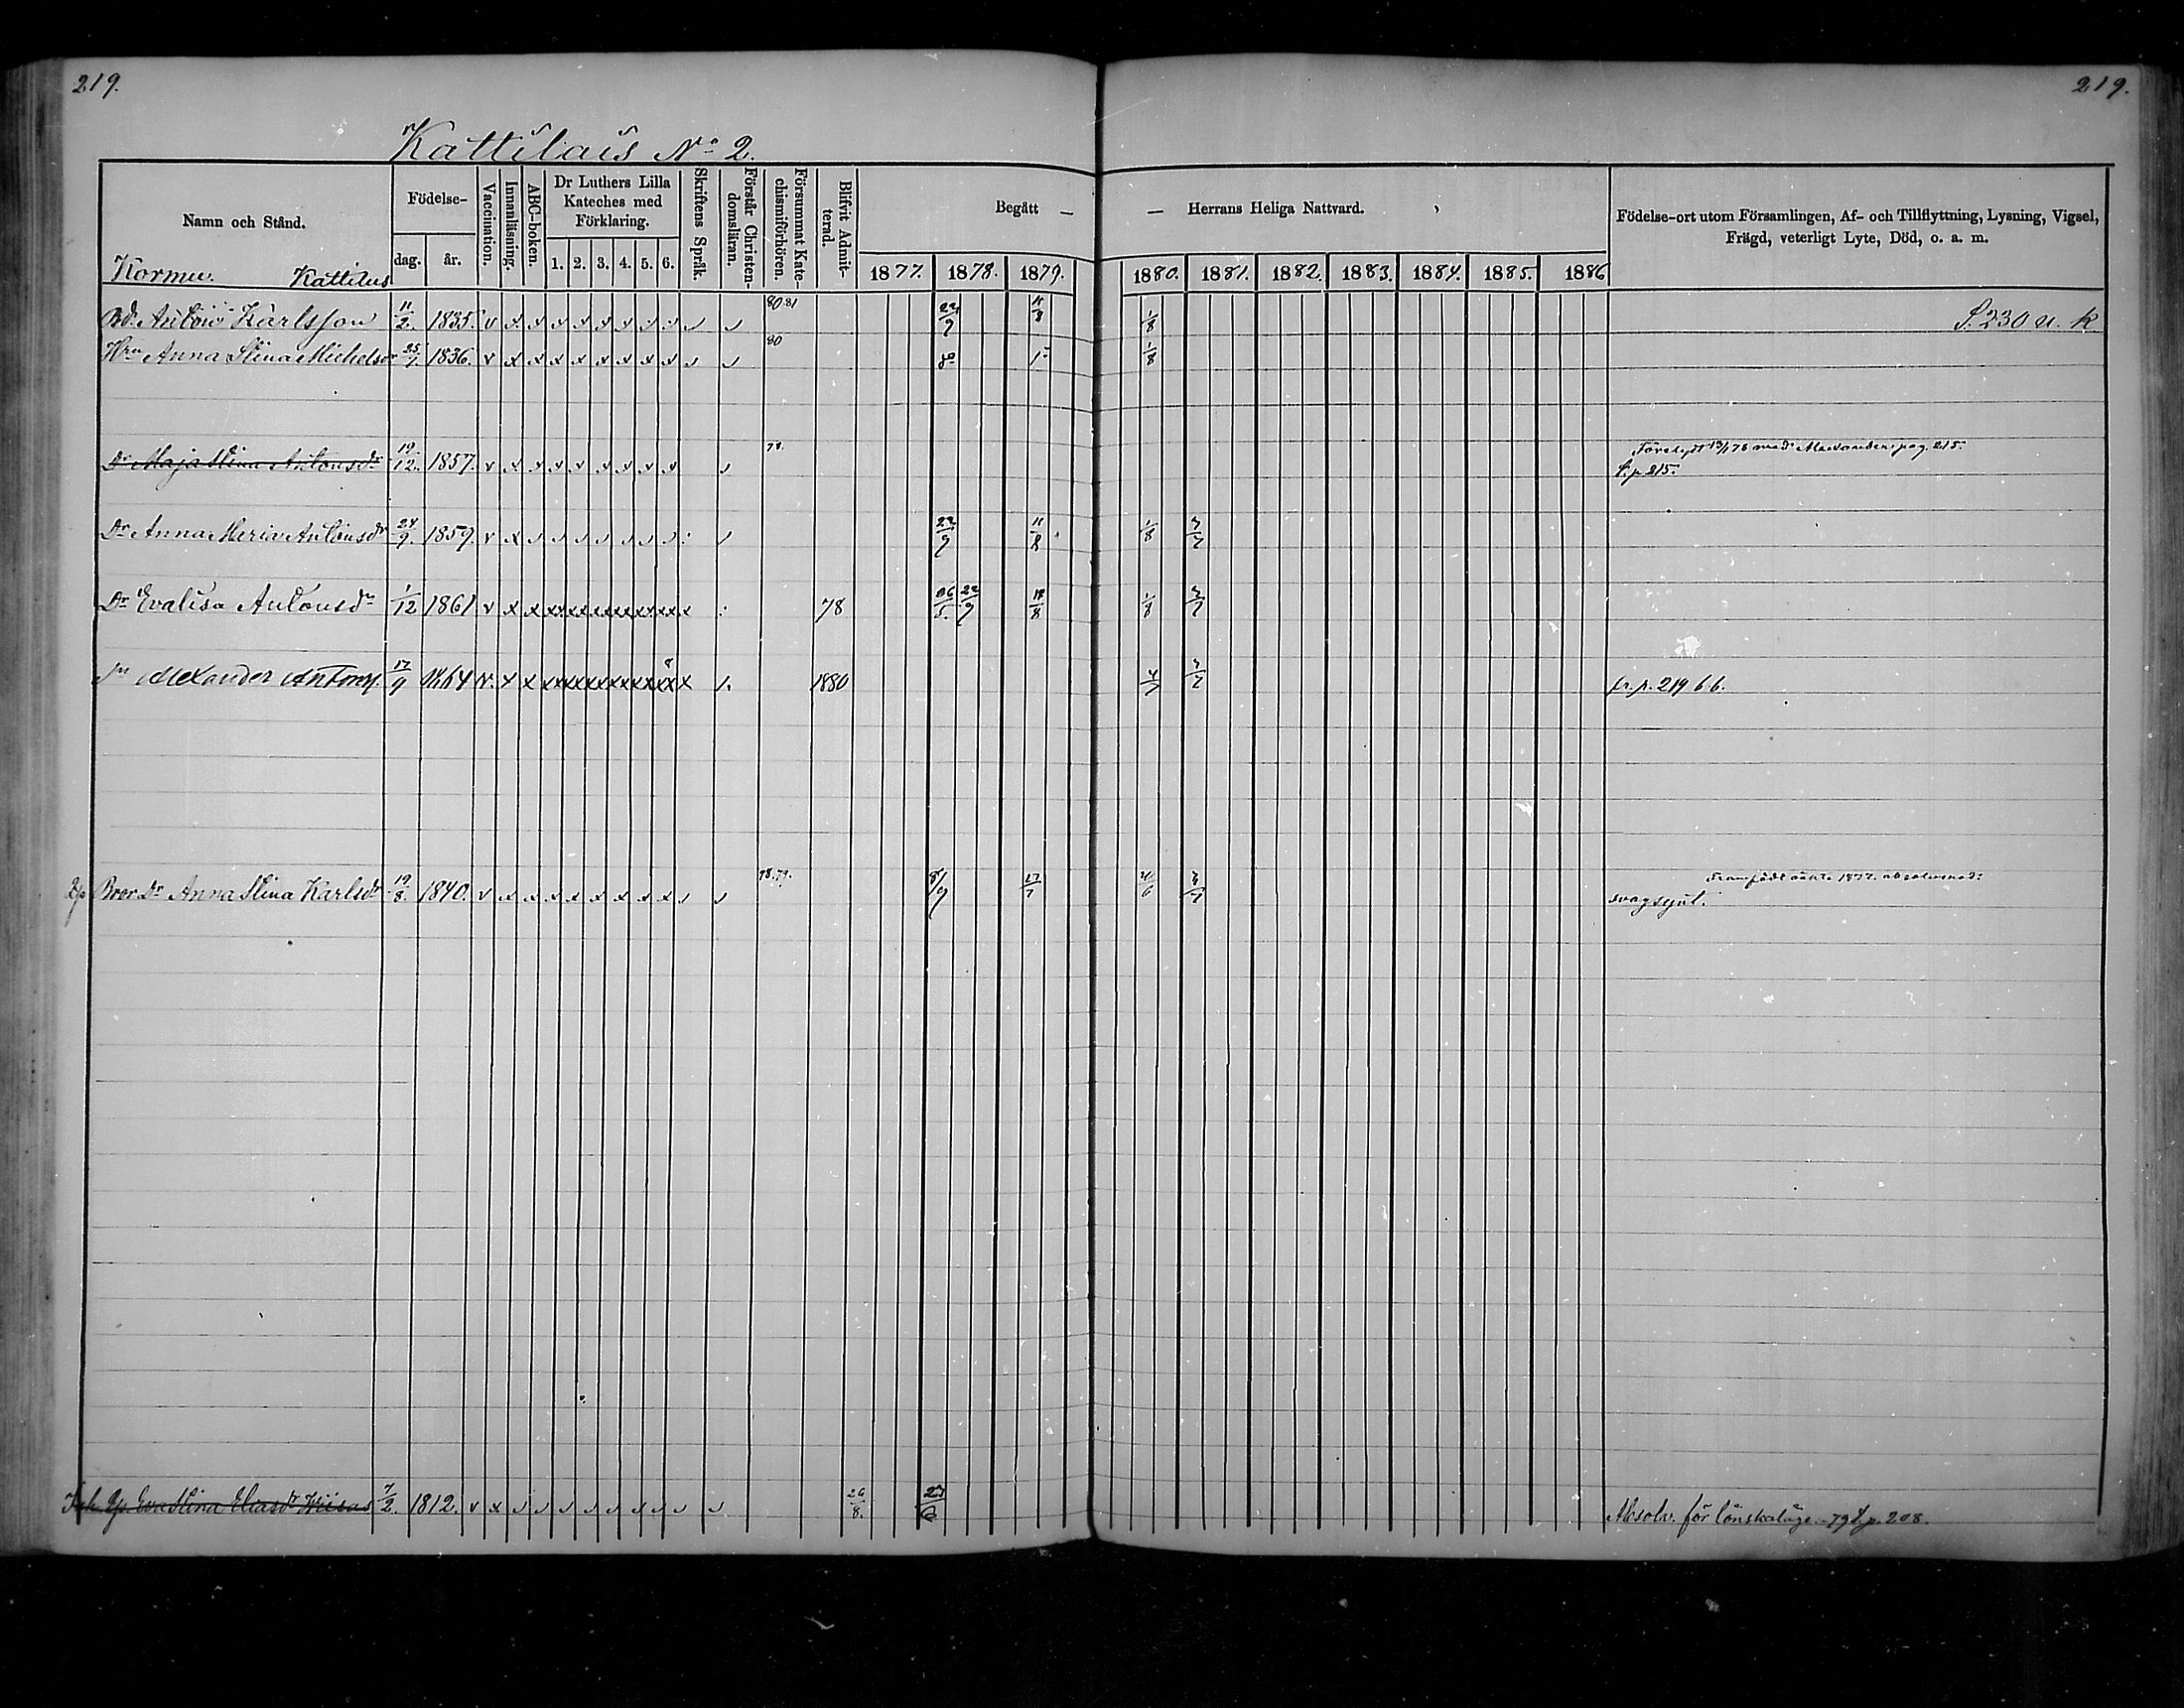 219.
219.
Kattilais No 2.
Namn och Stånd.
Födelse-
dag.
år.
Vaccination.
Innanläsning.
ABC-boken.
Dr Luthers Lilla
Kateches med
Förklaring.
1. 2. 3. 4. 5. 6.
Skriftens Språk.
Förstår Christen-
domsläran.
Försummat Kate-
chismiförhören.
Blifvit Admit-
terad.
Begått — — Herrans Heliga Nattvard.
1877. 1878. 1879. 1880. 1881. 1882. 1883. 1884. 1885. 1886
Födelse-ort utom Församlingen, Af- och Tillflyttning, Lysning, Vigsel,
Frägd, veterligt Lyte, Död, o. a. m.
Kormu. Kattilus
Bd. Anton Karlsson 11/2. 1835. v 80 81 22/9 11/8 1/8 S. 230 u. k
Hru Anna Stina Michelsdr 25/7. 1836. v x x x x x x x x 80 1/8
Dr Maja Stina Antonsdr 19/12. 1857. v x x x x x x x x 78. pag. 215.
t. p 215.
Dr Anna Maria Antonsdr 24/9. 1859. v x 22/9 11/8 1/8 3/7
Dr Evalisa Antonsdr 1/12 1861 v x x 78 26/5. 22/9 18/8 1/8 3/7
Sn Alexander Antons. 17/9 1864 v. x x 1880 4/7 3/7 fr. p. 219 bb.
Bror Dr Anna Stina Karlsdr 19/8. 1840. v x x x x x x x x 78. 79. 8/9 27/7 3/7 1877. absolverad:
svagsynt.
Eva Stina Eliasdr 7/2. 1812. v x 26/8. 23/6 Absolv. för lönskaläge -79 t. p. 208.